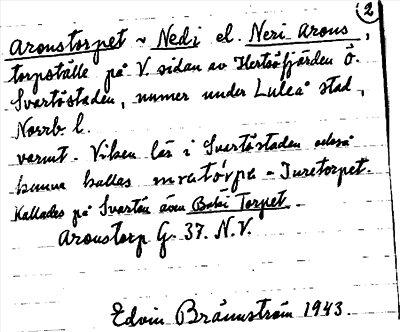 2
Aronstorpet ~ Nedi el. Neri Arons,
torpställe på V. sidan av Hertsöfjärden Ö.
Svartöstaden, numer under Luleå stad,
Norrb. l.
varmt. Viken lär i Svartöstaden också
kunna kallas - Juretorpet.
Kallades på Svartön även Torpet
Aronstorp G. 37. N.V.
Edvin Brännström 1943.